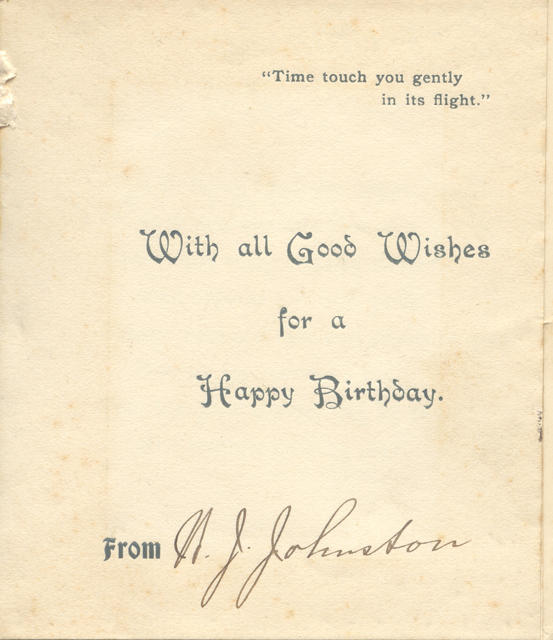 "Time touch you gently
in its flight."
With all Good Wishes
for a
Happy Birthday.
From N. J. Johnston